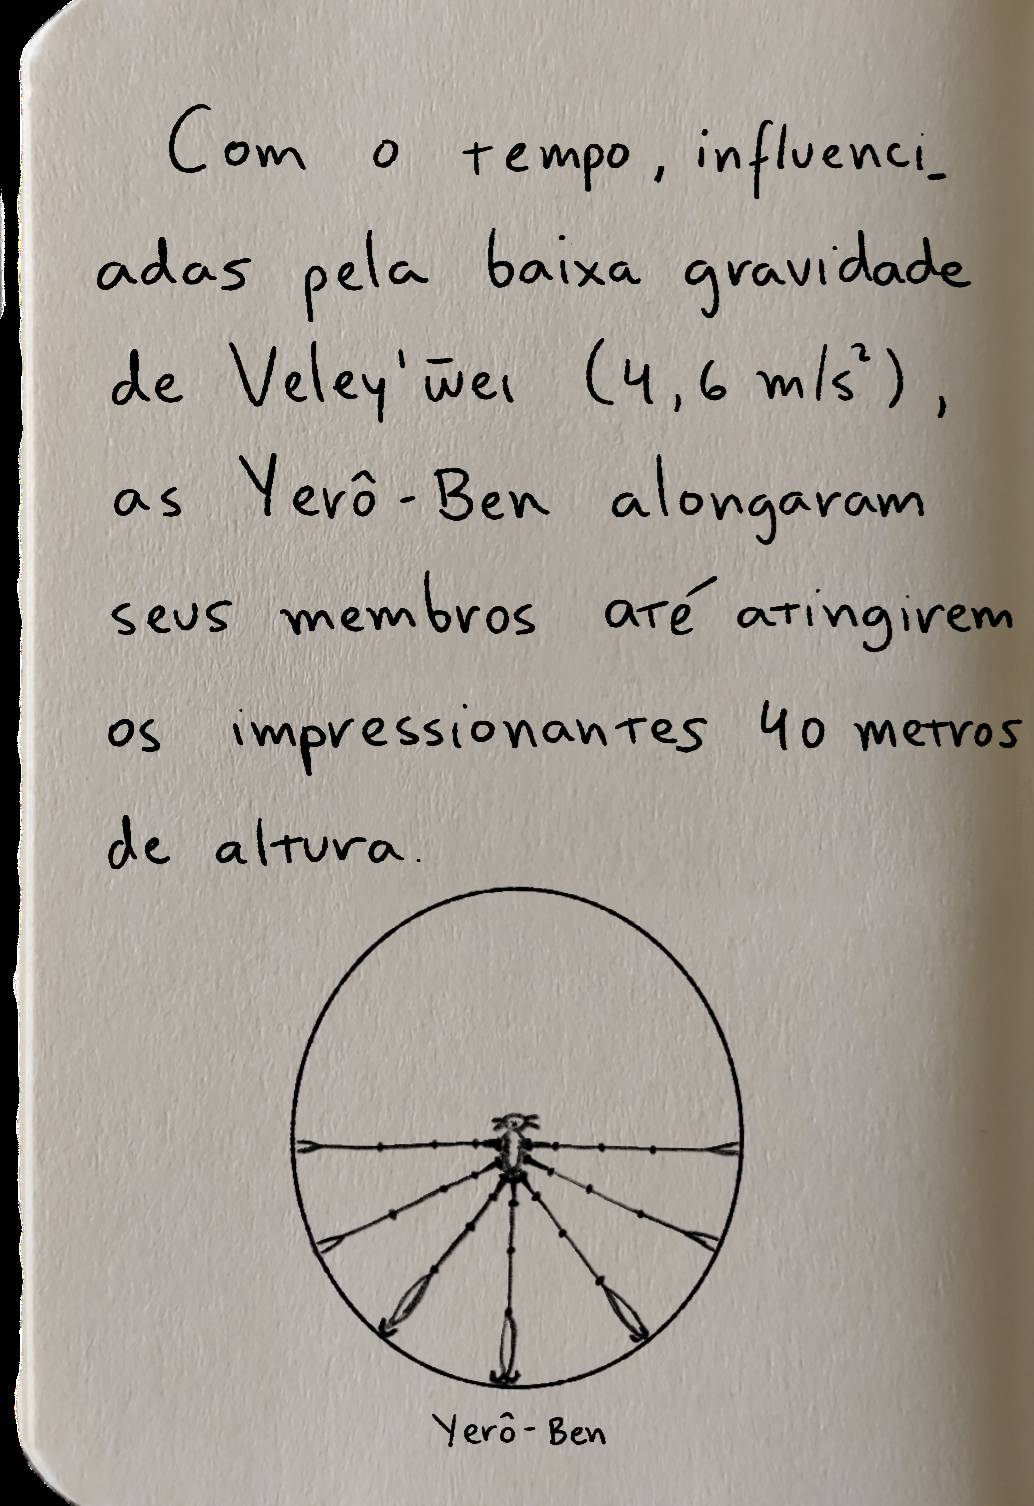 Com o tempo, influenci_
adas pela baixa gravidade
de Veley'w̄ei (4,6 m/s²),
as Yerô-Ben alongaram
seus membros até atingirem
os impressionantes 40 metros
de altura.
Yerô-Ben